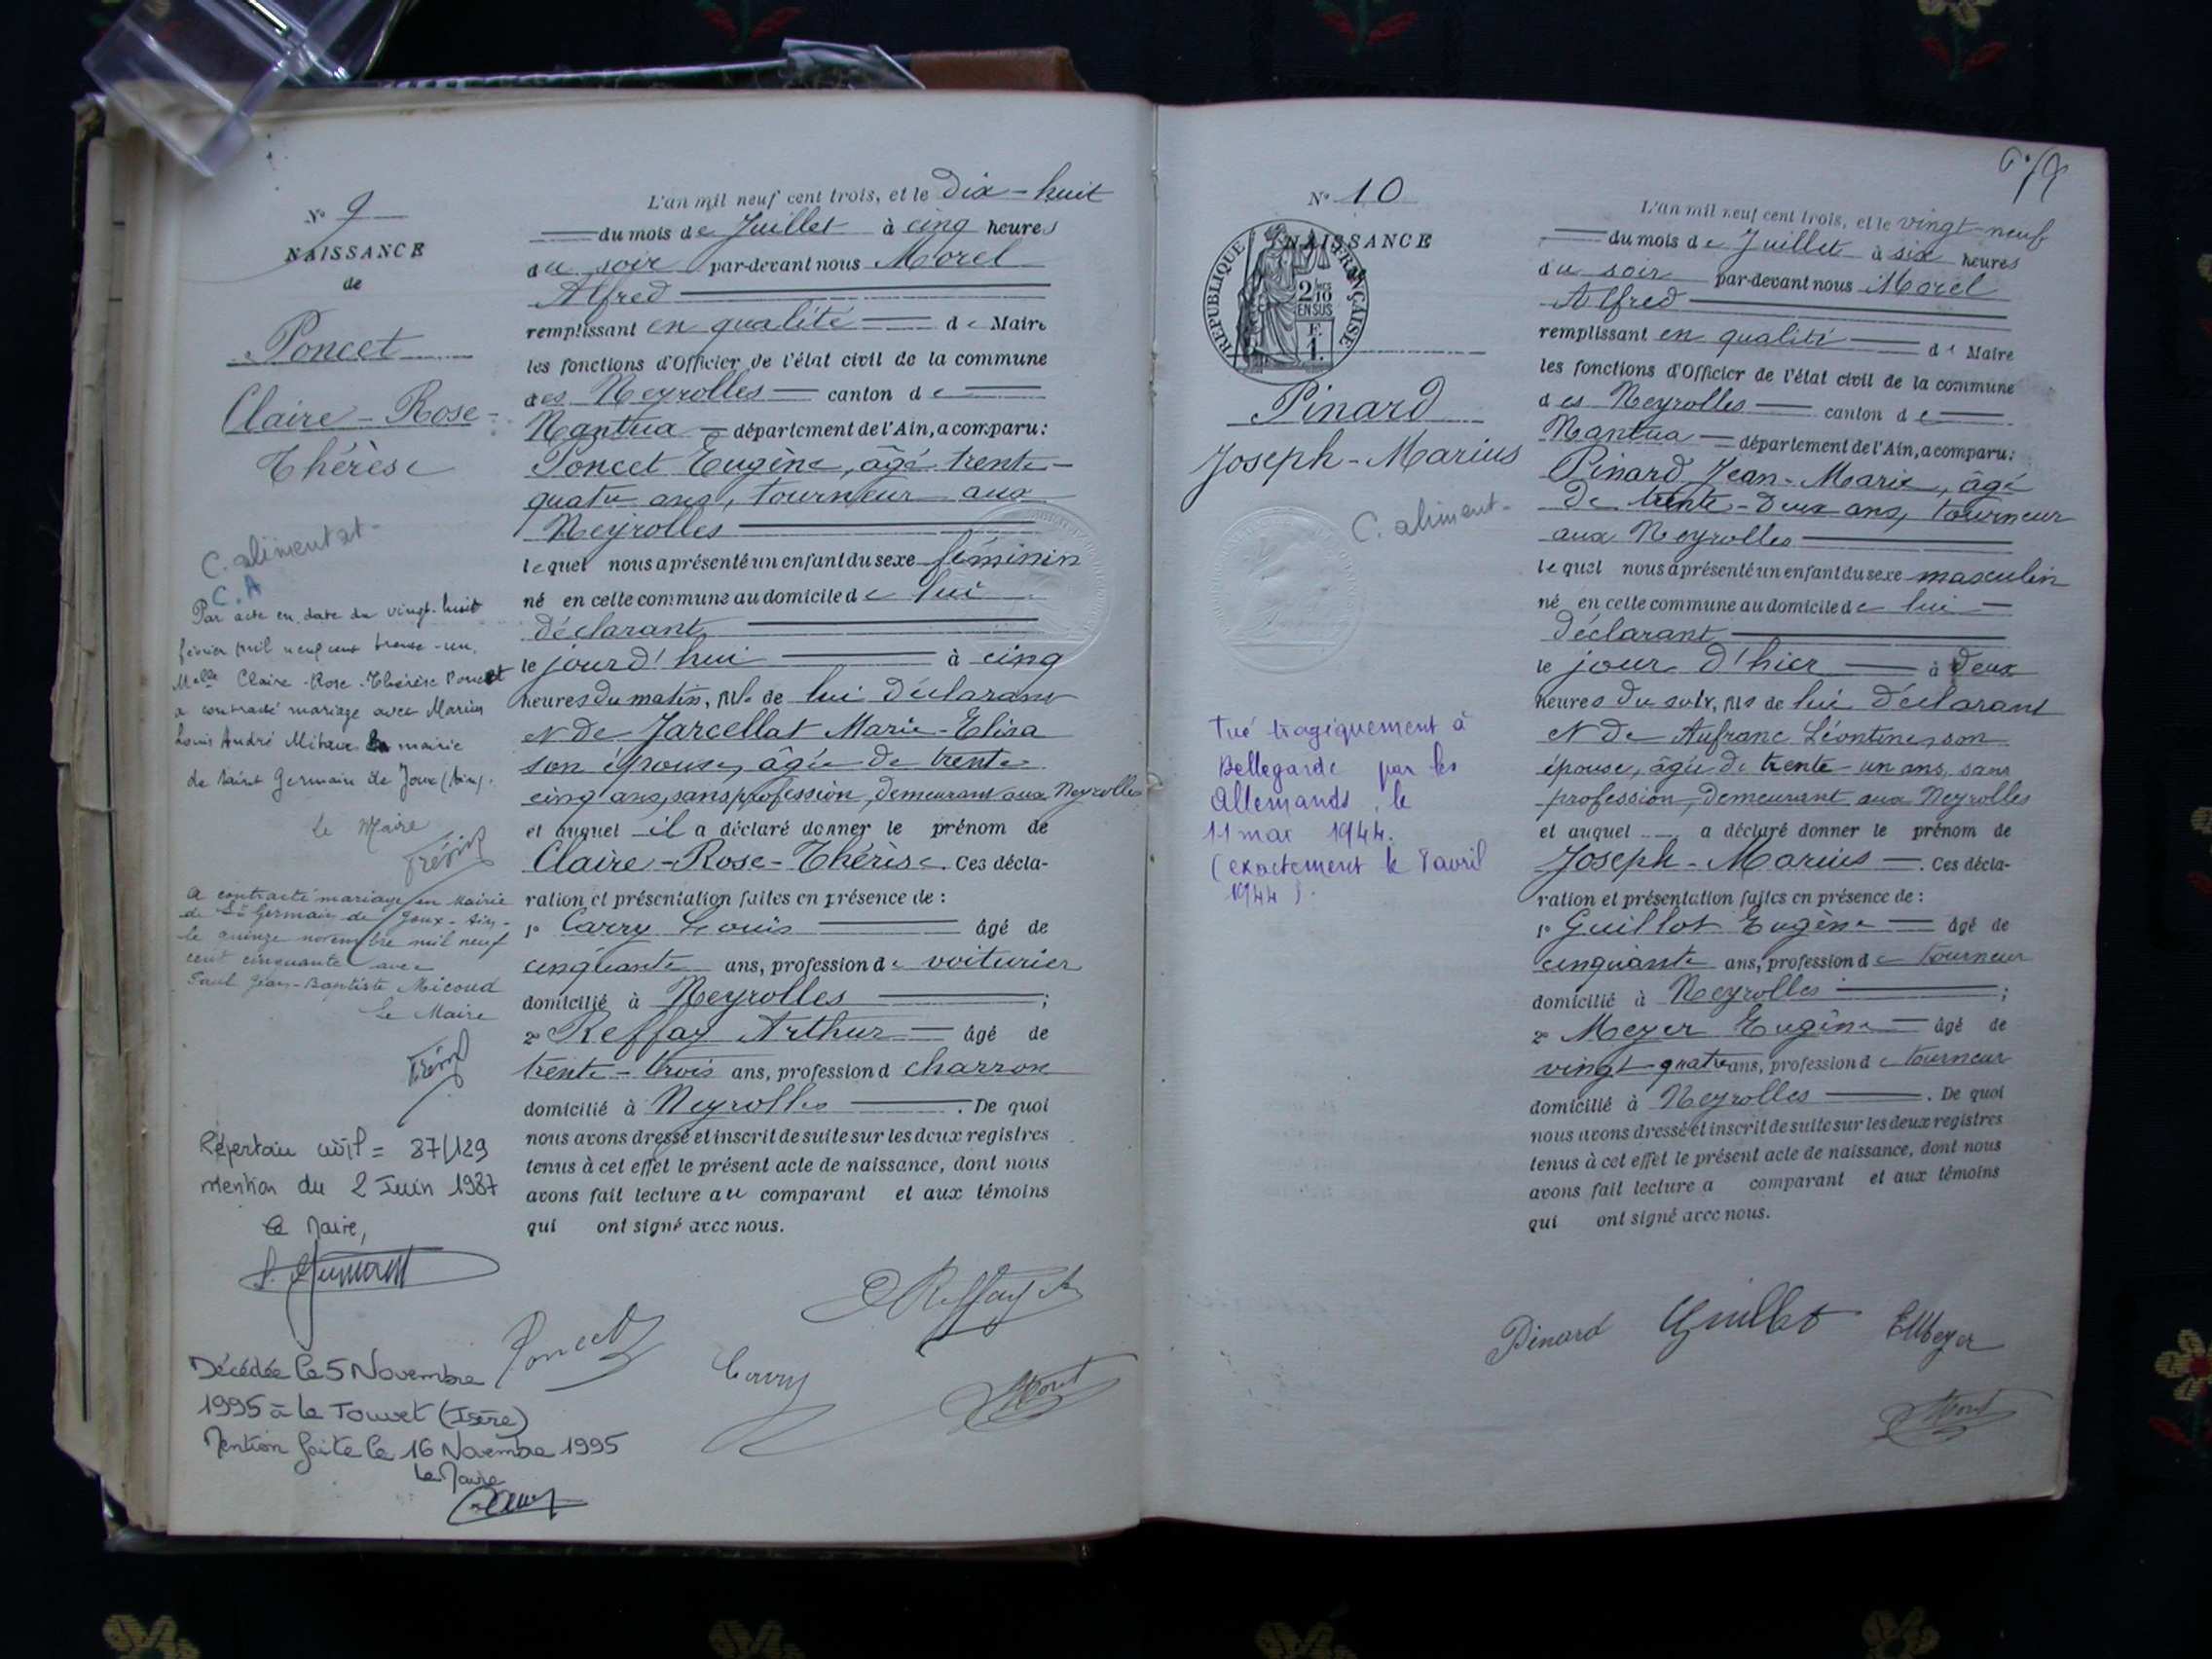 N° 9
NAISSANCE
de
Poncet
Claire-Rose-
Thérèse
C. alimentat-
C.A
Par acte en date du vingt-huit
février mil neuf cent trente-un,
Melle Claire-Rose-Thérèse Poncet
a contracté mariage avec Marius
Louis André en mairie
de Saint Germain de Joux (Ain).
Le Maire
A contracté mariage en mairie
de St Germain de Joux-Ain-
le quinze novembre mil neuf
cent cinquante avec
Paul Jean-Baptiste Micoud
Le Maire
Répertoire civil = 87/129
mention du 2 Juin 1987
Le Maire,
Décédée le 5 Novembre
1995 à Le Touvet (Isère)
Mention faite le 16 Novembre 1995
Le Maire
L'an mil neuf cent trois, et le dix-huit
du mois de Juillet à cinq heures
du soir par-devant nous Morel
Alfred
remplissant en qualité de Maire
les fonctions d'Officier de l'état civil de la commune
des Neyrolles canton de
Nantua département de l'Ain, a comparu:
Poncet Eugène, âgé trente-
quatre ans, tourneur aux
Neyrolles
lequel nous a présenté un enfant du sexe féminin
né en cette commune au domicile de lui
déclarant
le jourd'hui à cinq
heures du matin, fils de lui déclarant
et de Jarcellat Marie-Elisa
son épouse, âgée de trente
cinq ans, sans profession, demeurant aux Neyrolles
et auquel il a déclaré donner le prénom de
Claire-Rose-Thérèse. Ces décla-
ration et présentation faites en présence de:
1° Carry Louis âgé de
cinquante ans, profession de voiturier
domicilié à Neyrolles ;
2° Reffay Arthur âgé de
trente-trois ans, profession d charron
domicilié à Neyrolles . De quoi
nous avons dressé et inscrit de suite sur les deux registres
tenus à cet effet le présent acte de naissance, dont nous
avons fait lecture au comparant et aux témoins
qui ont signé avec nous.
Poncet
Reffay
Carry
Morel
N° 10
NAISSANCE
REPUBLIQUE FRANÇAISE
2/10
EN SUS
F.
1.
Pinard
Joseph-Marius
C. aliment-
Tué tragiquement à
Bellegarde par les
Allemands, le
11 mai 1944.
(exactement le 8 avril
1944).
L'an mil neuf cent trois, et le vingt-neuf
du mois de Juillet à six heures
du soir par-devant nous Morel
Alfred
remplissant en qualité de Maire
les fonctions d'Officier de l'état civil de la commune
des Neyrolles canton de
Nantua département de l'Ain, a comparu:
Pinard Jean-Marie, âgé
de trente-deux ans, tourneur
aux Neyrolles
lequel nous a présenté un enfant du sexe masculin
né en cette commune au domicile de lui
déclarant
le jour d'hier à deux
heures du soir, fils de lui déclarant
et de Aufranc Léontine, son
épouse, âgée de trente-un ans, sans
profession, demeurant aux Neyrolles
et auquel a déclaré donner le prénom de
Joseph-Marius . Ces décla-
ration et présentation faites en présence de:
1° Guillot Eugène âgé de
cinquante ans, profession de tourneur
domicilié à Neyrolles ;
2° Meyer Eugène âgé de
vingt-quatre ans, profession de tourneur
domicilié à Neyrolles . De quoi
nous avons dressé et inscrit de suite sur les deux registres
tenus à cet effet le présent acte de naissance, dont nous
avons fait lecture a comparant et aux témoins
qui ont signé avec nous.
Pinard Guillot E Meyer
Morel